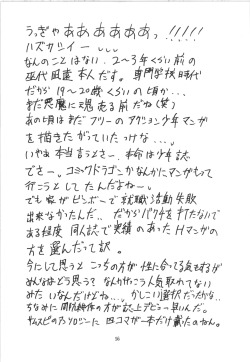 うぎゃああああああ、!!!!!
ハズカシイー、、、
なんのことはない、2〜3年くらい前の
専門学校時代
だから19〜20歳くらいの頃か・・・
まだ悪魔に魂売る前だね(笑)
あの頃はまだフリーのアクション少年マンガ
を描きたがっていたっけな・・・。
いやま本当言うとさー、本命は少年誌
でさー。コミックドラゴンかなんかにマンガもって
行こうとしてたんだよねー。
でも家がビンボーで就職活動失敗
出来なかったんだ。だからバクチを打たないで
ある程度同人誌で実績のあったHマンガの
方を選んだって訳。
今にして思うとこっちの方が性に合ってる気もするが
みんなはどう思う?なんか行こう人気取れてない
みたいなんだけどね・・・。かしこい選択だったかな・・
ちなみに関節技の方が誌上デビュー早いんだ。
四コマが一本だけ載ったのねん。
56